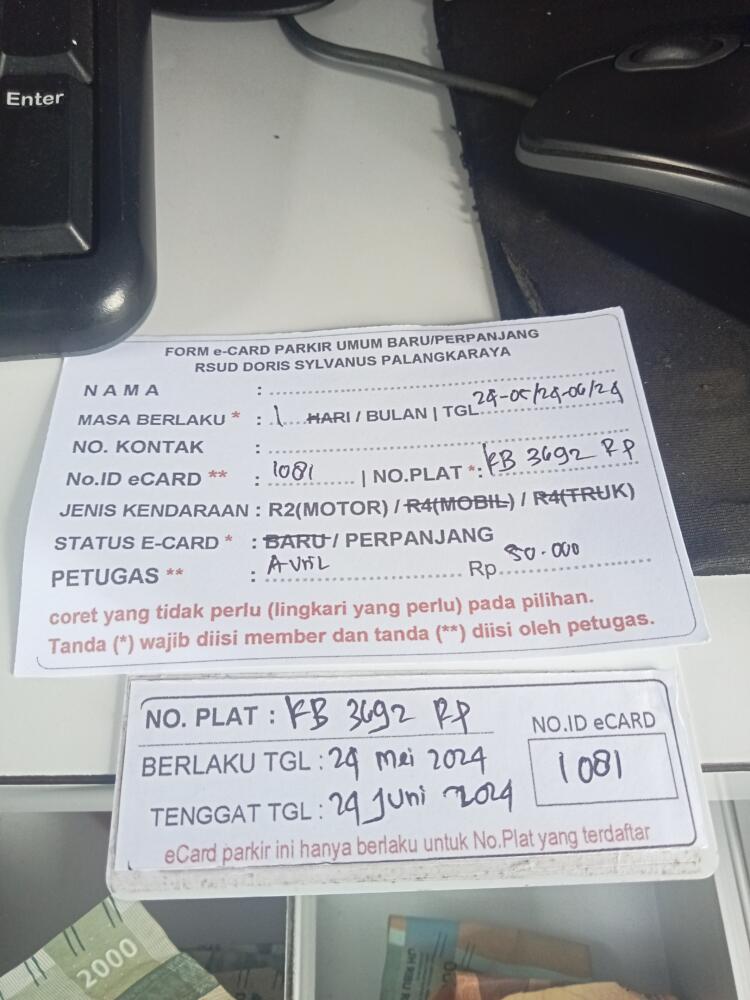 Enter
FORM e-CARD PARKIR UMUM BARU/PERPANJANG
RSUD DORIS SYLVANUS PALANGKARAYA
NAMA :
MASA BERLAKU * : 1 HARI / BULAN | TGL 24-05/24-06/24
NO. KONTAK :
No.ID eCARD ** : 1081 | NO.PLAT *: KB 3692 RP
JENIS KENDARAAN : R2(MOTOR) / R4(MOBIL) / R4(TRUK)
STATUS E-CARD * : BARU / PERPANJANG
PETUGAS ** : AVRIL Rp 50.000
coret yang tidak perlu (lingkari yang perlu) pada pilihan.
Tanda (*) wajib diisi member dan tanda (**) diisi oleh petugas.
NO. PLAT : KB 3692 RP
NO.ID eCARD
1081
BERLAKU TGL : 24 Mei 2024
TENGGAT TGL : 24 Juni 2024
eCard parkir ini hanya berlaku untuk No.Plat yang terdaftar
2000